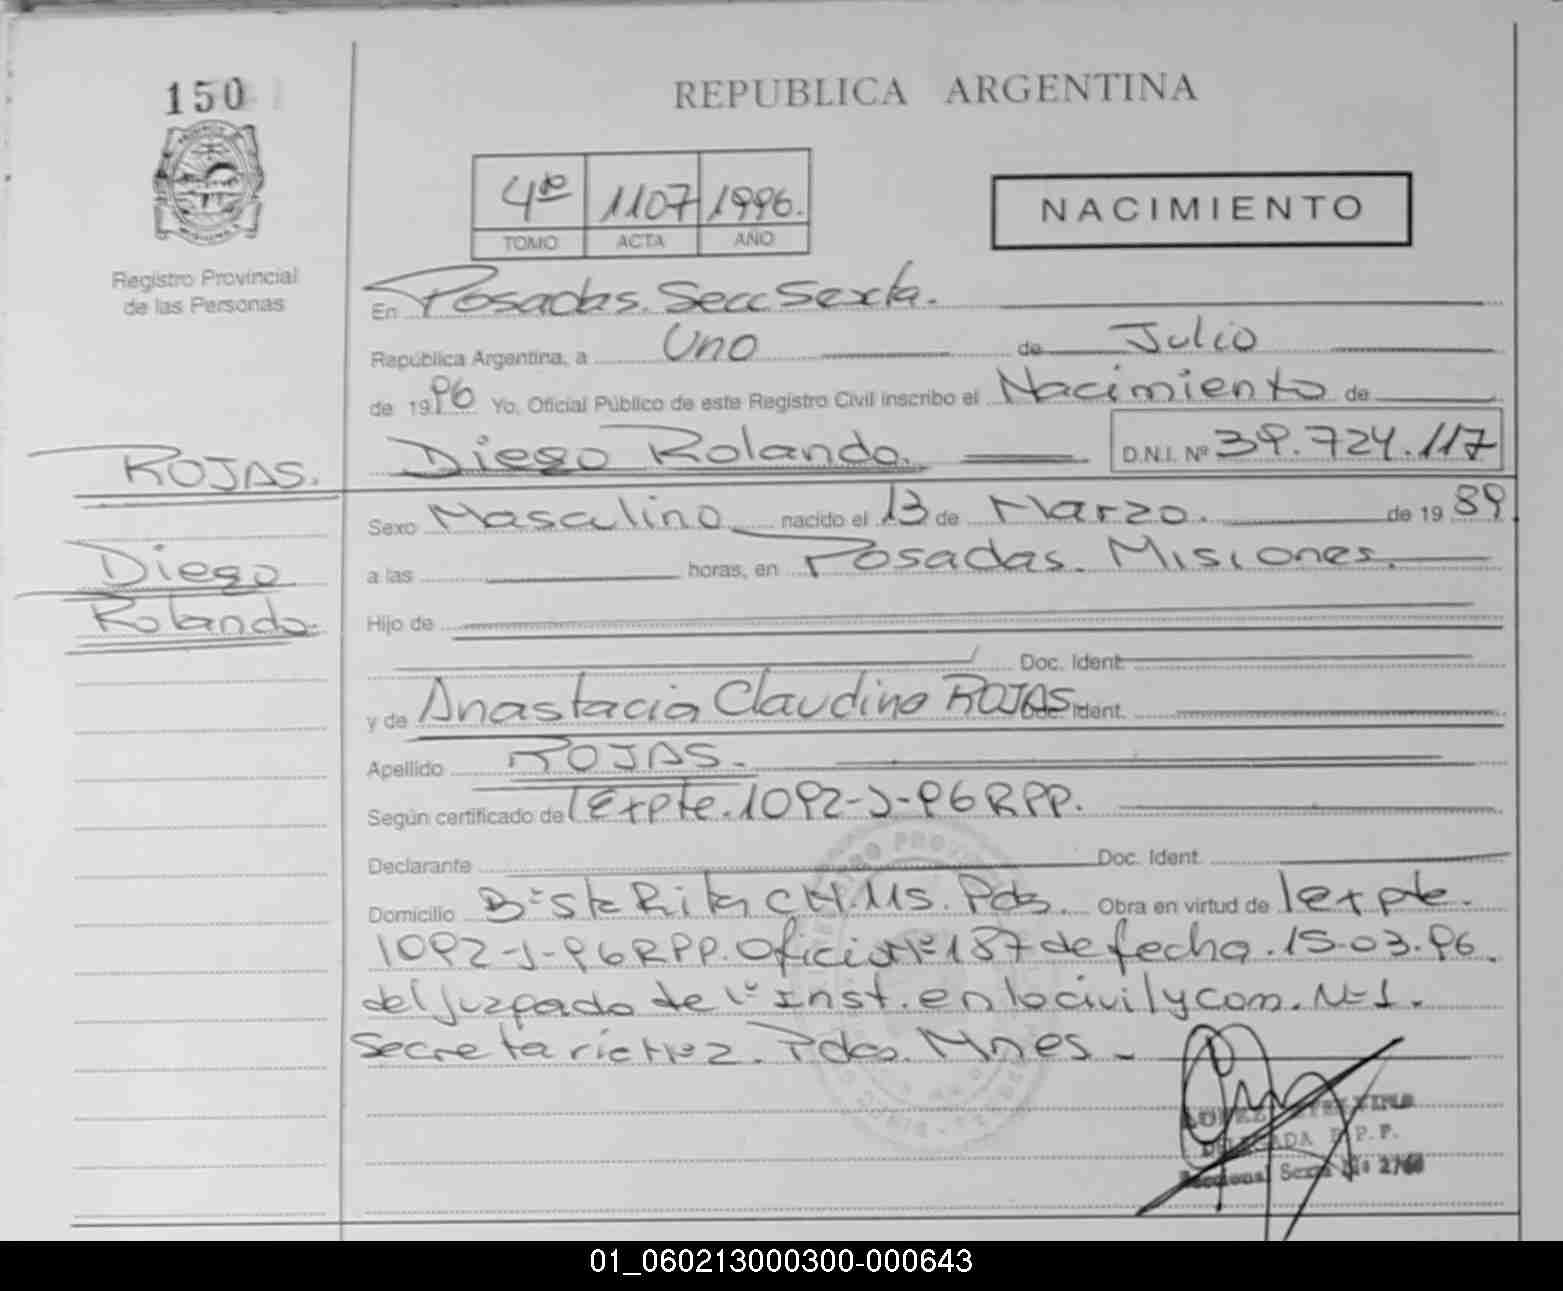 150
REPUBLICA ARGENTINA
4to 1107 1996.
TOMO ACTA AÑO
NACIMIENTO
Registro Provincial
de las Personas
En Posadas. Secc Sexta.
República Argentina, a Uno de Julio
de 1996 Yo, Oficial Público de este Registro Civil inscribo el Nacimiento de
ROJAS. Diego Rolando. D.N.I. Nº 39.724.117
Sexo Masculino nacido el 13 de Marzo. de 1989.
Diego
a las horas, en Posadas. Misiones.
Rolando.
Hijo de
Doc. Ident.
y de Anastacia Claudina ROJAS. Doc. Ident.
Apellido ROJAS.
Según certificado de Expte. 1092-J-96 RPP.
Declarante Doc. Ident.
Domicilio Bº Sta Rita CH. 115. Pdas. Obra en virtud de Expte.
1092-J-96 RPP. Oficio Nº 187 de fecha. 15-03-96.
del juzgado de 1º Inst. en lo civil y com. Nº 1.
Secretaria Nº 2. Pdas. Mnes.
LOPEZ
DELEGADA R.P.P.
Seccional Sexta Nº
01_060213000300-000643